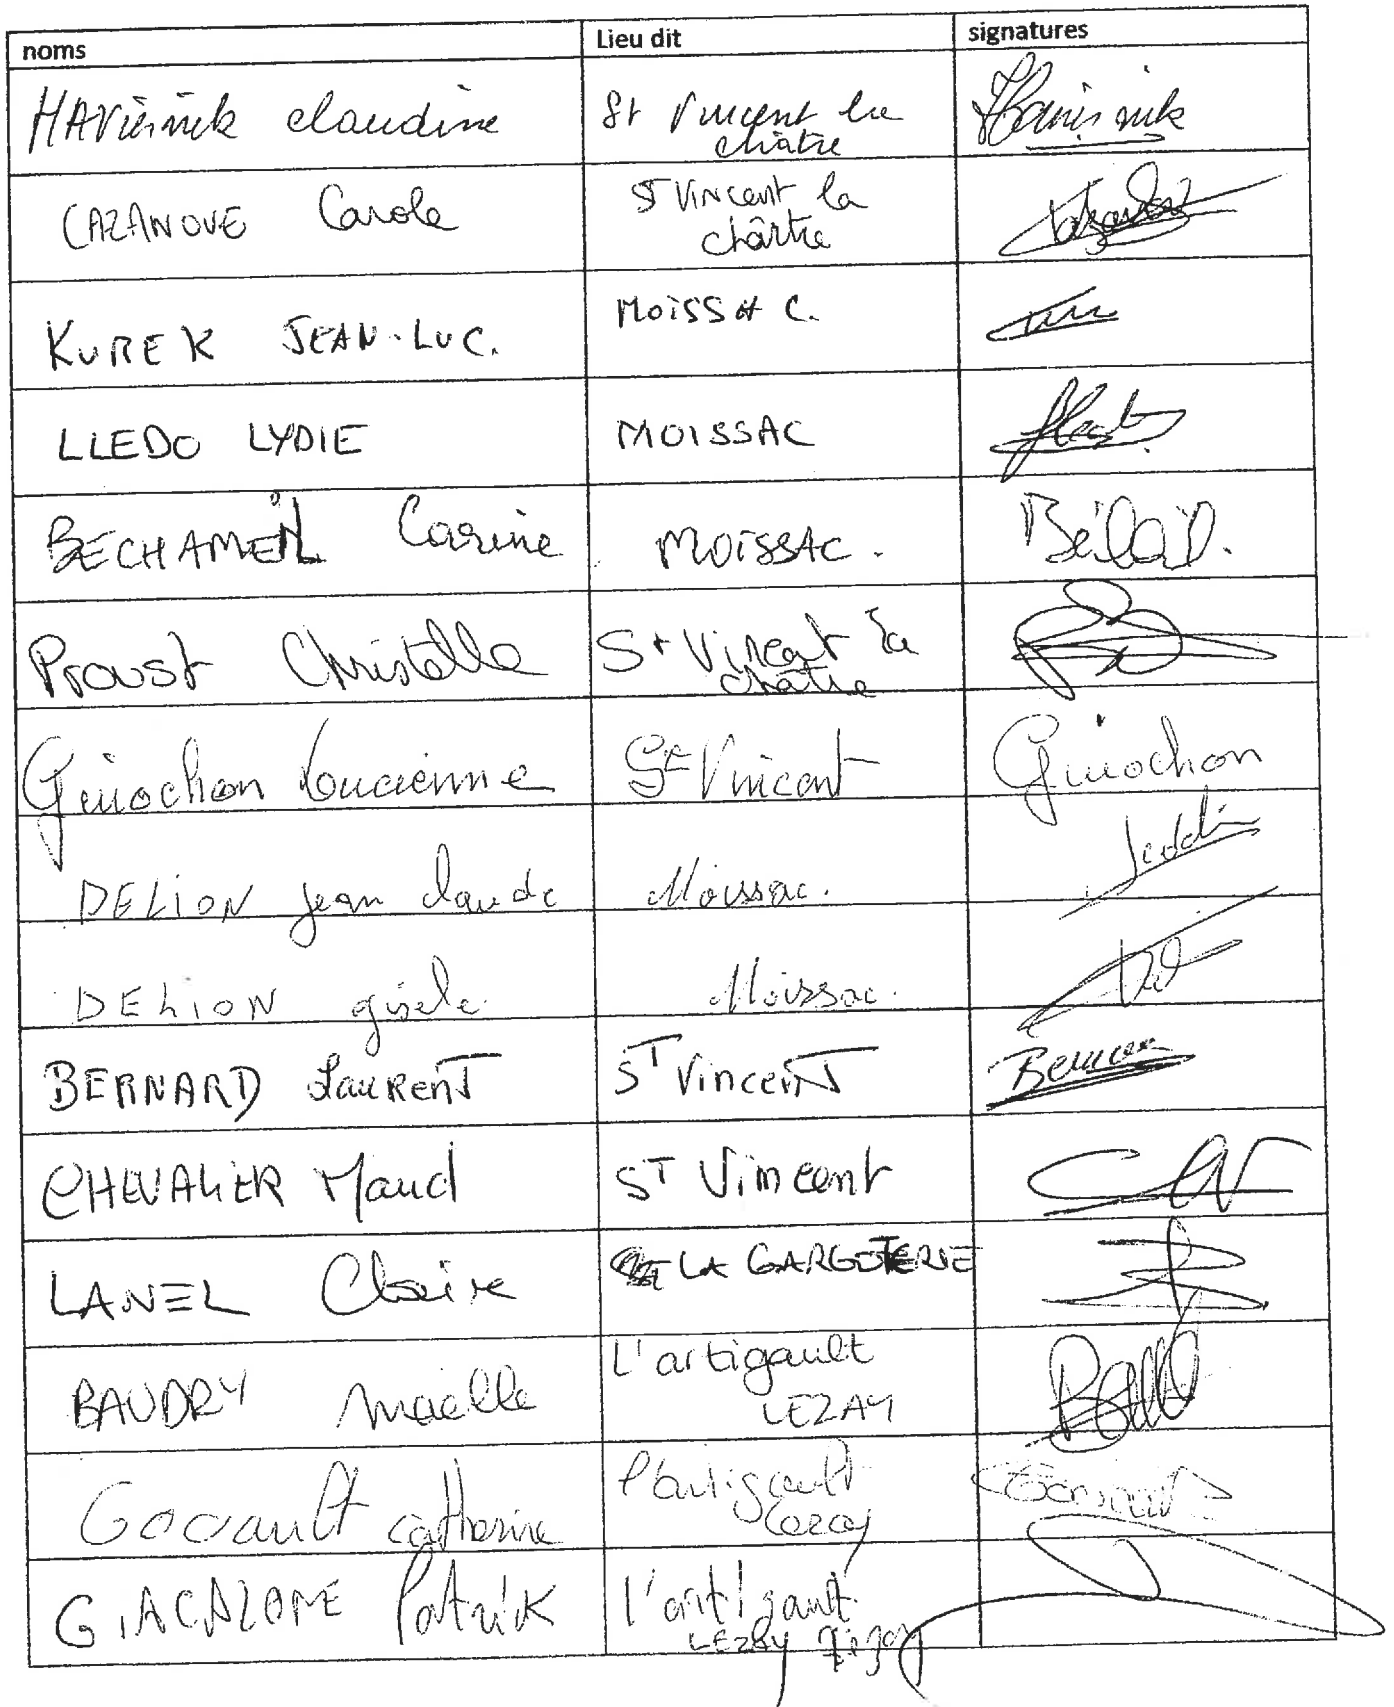 noms Lieu dit signatures
HAVIERNIK claudine St Vincent la
châtre
CAZANOVE Carole St Vincent la
chârtre
KUREK JEAN-LUC. MOISSAC.
LLEDO LYDIE MOISSAC
BECHAMEIL Carine MOISSAC.
Proust Christelle St Vincent la
châtre
Guiochon Lucienne St Vincent Guiochon
DELION jean claude Moissac.
DELION gisele Moissac.
BERNARD Laurent ST Vincent
CHEVALIER Maud ST Vincent
LANEL Claire LA GARGOTERIE
BAUDRY Maëlle L'artigault
LEZAY
Gocault catherine l'artigault
Lezay
GIACALONE Patrick l'artigault
LEZAY